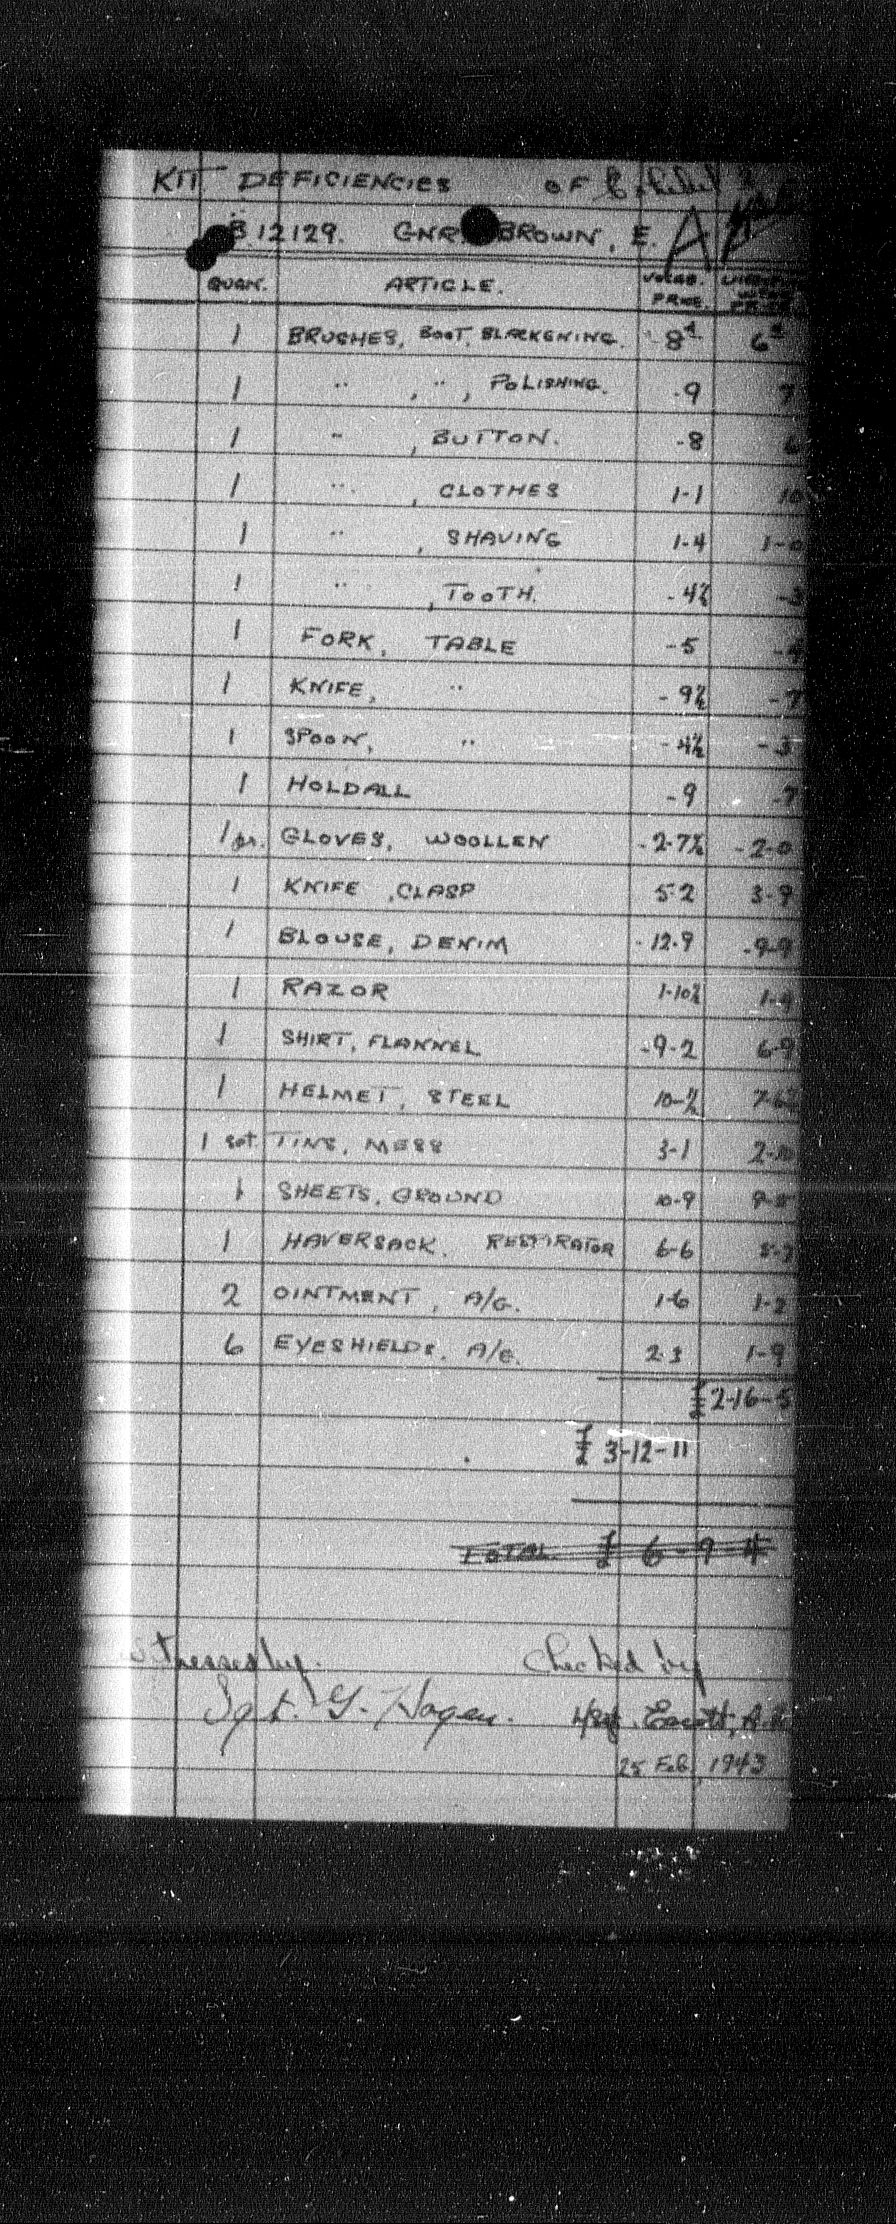 KIT DEFICIENCIES OF Exhibit
B.12129. GNR. BROWN, E. A
QUAN. ARTICLE. VOCAB. PRICE.
1 BRUSHES, BOOT, BLACKENING. 8d 6d
1 " , " , POLISHING. -9 7
1 " , BUTTON. -8 6
1 " , CLOTHES 1-1 10
1 " , SHAVING 1-4 1-0
1 " , TOOTH. -4½ -3
1 FORK, TABLE -5 -4
1 KNIFE, " -9½ -7
1 SPOON, " -4½ -3
1 HOLDALL -9 -7
1 pr. GLOVES, WOOLLEN -2-7½ -2-0
1 KNIFE, CLASP 5-2 3-9
1 BLOUSE, DENIM -12.9 -9-9
1 RAZOR 1-10½ 1-4
1 SHIRT, FLANNEL -9-2 6-9
1 HELMET, STEEL
1 set TINS, MESS 3-1 2-10
1 SHEETS, GROUND 10-9
1 HAVERSACK, RESPIRATOR 6-6
2 OINTMENT, A/G. 1-6 1-2
6 EYESHIELDS, A/G. 2 3 1-9
£ 2-16-5
£ 3-12-11
TOTAL £ 6-9-4
Witnessed by. Checked by
Sgt. G. Hogan.
25 Feb, 1943